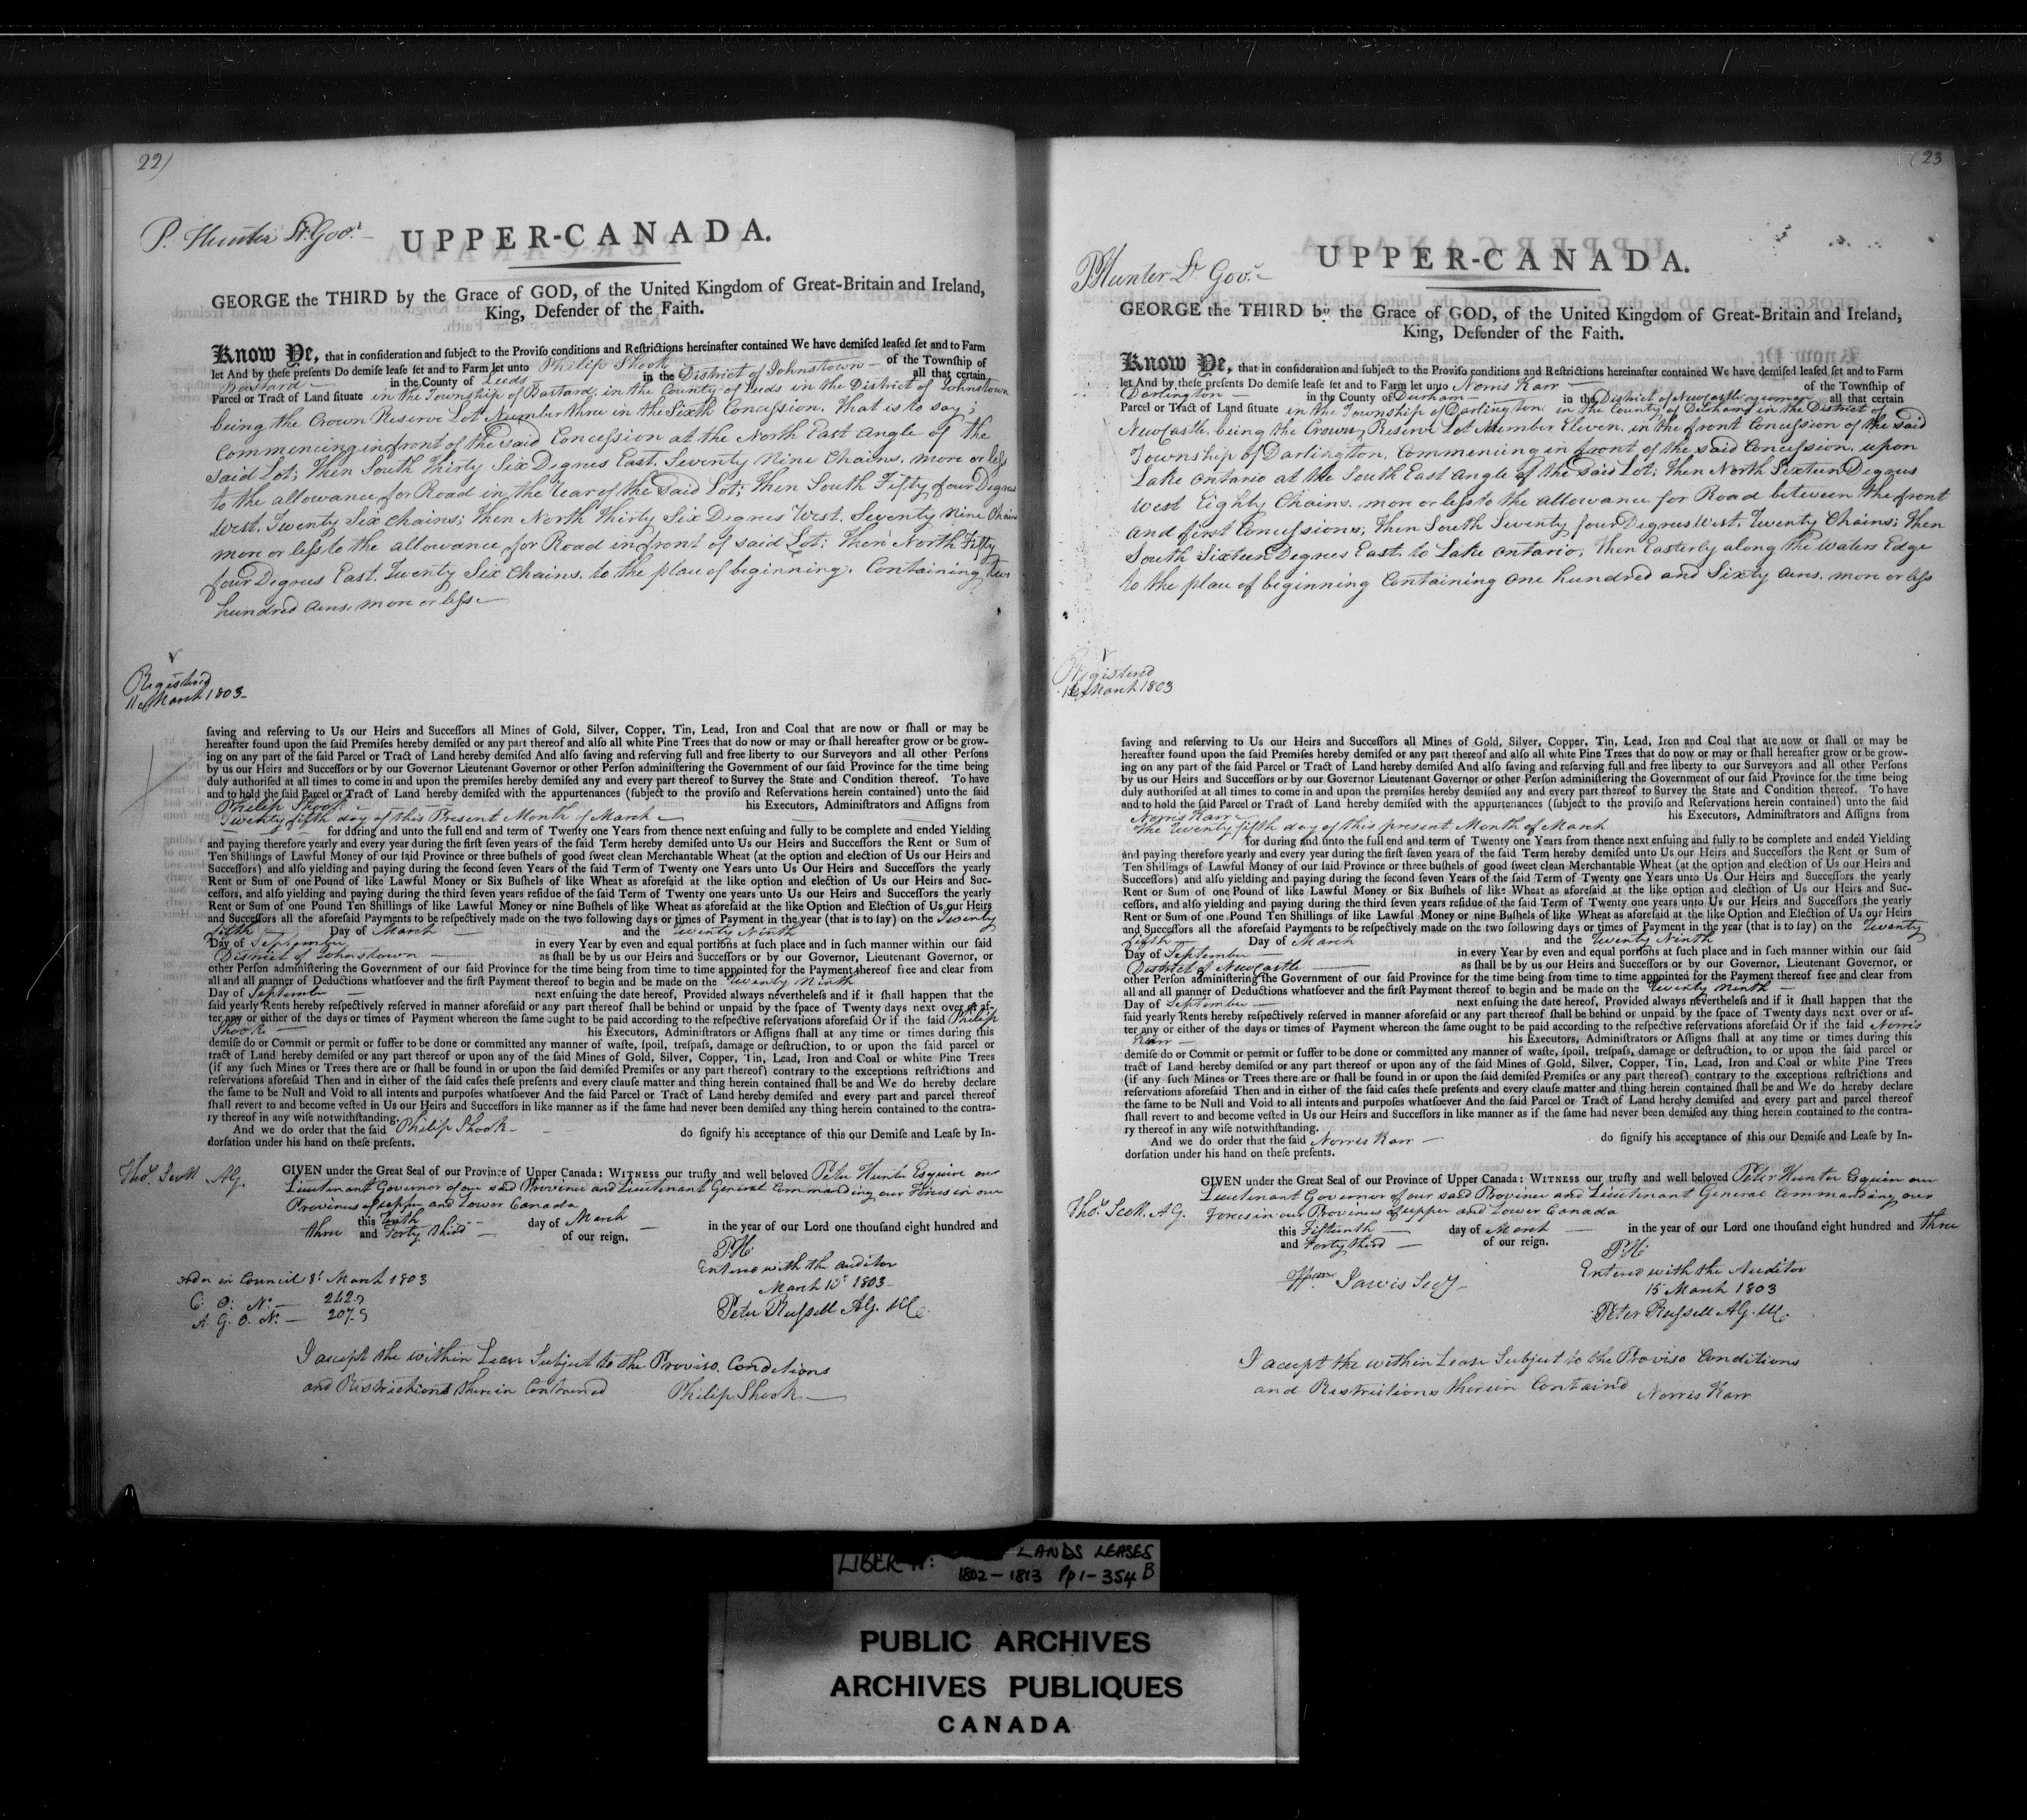 22)
P. Hunter Lt. Govr.
UPPER-CANADA.
GEORGE the THIRD by the Grace of GOD, of the United Kingdom of Great-Britain and Ireland,
King, Defender of the Faith.
Know Ye, that in conſideration and ſubject to the Proviſo conditions and Reſtrictions hereinafter contained We have demiſed leaſed ſet and to Farm
let And by theſe preſents Do demiſe leaſe ſet and to Farm let unto Philip Shook of the Townſhip of
Bastard in the County of Leeds in the District of Johnstown all that certain
Parcel or Tract of Land ſituate in the Township of Bastard, in the County of Leeds in the District of Johnstown
being the Crown Reserve Lot Number three in the Sixth Concession. That is to say;
Commencing in front of the said Concession at the North East Angle of the
said Lot; Then South Thirty Six Degrees East. Seventy Nine Chains. more or less
to the allowance for Road in the Rear of the said Lot; Then South Fifty four Degrees
West. Twenty Six Chains; Then North Thirty Six Degrees West. Seventy Nine Chains
more or less to the allowance for Road in front of said Lot; Then North Fifty
four Degrees East. Twenty Six Chains. to the place of beginning. Containing two
hundred acres. more or less
Registered
11th March 1803
ſaving and reſerving to Us our Heirs and Succeſſors all Mines of Gold, Silver, Copper, Tin, Lead, Iron and Coal that are now or ſhall or may be
hereafter found upon the ſaid Premiſes hereby demiſed or any part thereof and alſo all white Pine Trees that do now or may or ſhall hereafter grow or be grow-
ing on any part of the ſaid Parcel or Tract of Land hereby demiſed And alſo ſaving and reſerving full and free liberty to our Surveyors and all other Perſons
by us our Heirs and Succeſſors or by our Governor Lieutenant Governor or other Perſon adminiſtering the Government of our ſaid Province for the time being
duly authoriſed at all times to come in and upon the premiſes hereby demiſed any and every part thereof to Survey the State and Condition thereof. To have
and to hold the ſaid Parcel or Tract of Land hereby demiſed with the appurtenances (ſubject to the proviſo and Reſervations herein contained) unto the ſaid
Philip Shook his Executors, Adminiſtrators and Aſſigns from
Twenty fifth day of this Present Month of March
for during and unto the full end and term of Twenty one Years from thence next enſuing and fully to be complete and ended Yielding
and paying therefore yearly and every year during the firſt ſeven years of the ſaid Term hereby demiſed unto Us our Heirs and Succeſſors the Rent or Sum of
Ten Shillings of Lawful Money of our ſaid Province or three buſhels of good ſweet clean Merchantable Wheat (at the option and election of Us our Heirs and
Succeſſors) and alſo yielding and paying during the ſecond ſeven Years of the ſaid Term of Twenty one Years unto Us Our Heirs and Succeſſors the yearly
Rent or Sum of one Pound of like Lawful Money or Six Buſhels of like Wheat as aforeſaid at the like option and election of Us our Heirs and Suc-
ceſſors, and alſo yielding and paying during the third ſeven years reſidue of the ſaid Term of Twenty one years unto Us our Heirs and Succeſſors the yearly
Rent or Sum of one Pound Ten Shillings of like Lawful Money or nine Buſhels of like Wheat as aforeſaid at the like Option and Election of Us our Heirs
and Succeſſors all the aforeſaid Payments to be reſpectively made on the two following days or times of Payment in the year (that is to ſay) on the Twenty
fifth Day of March and the Twenty Ninth
Day of September in every Year by even and equal portions at ſuch place and in ſuch manner within our ſaid
District of Johnstown as ſhall be by us our Heirs and Succeſſors or by our Governor, Lieutenant Governor, or
other Perſon adminiſtering the Government of our ſaid Province for the time being from time to time appointed for the Payment thereof free and clear from
all and all manner of Deductions whatſoever and the firſt Payment thereof to begin and be made on the Twenty Ninth
Day of September next enſuing the date hereof, Provided always nevertheleſs and if it ſhall happen that the
ſaid yearly Rents hereby reſpectively reſerved in manner aforeſaid or any part thereof ſhall be behind or unpaid by the ſpace of Twenty days next over or af-
ter any or either of the days or times of Payment whereon the ſame ought to be paid according to the reſpective reſervations aforeſaid Or if the ſaid Philip
Shook his Executors, Adminiſtrators or Aſſigns ſhall at any time or times during this
demiſe do or Commit or permit or ſuffer to be done or committed any manner of waſte, ſpoil, treſpaſs, damage or deſtruction, to or upon the ſaid parcel or
tract of Land hereby demiſed or any part thereof or upon any of the ſaid Mines of Gold, Silver, Copper, Tin, Lead, Iron and Coal or white Pine Trees
(if any ſuch Mines or Trees there are or ſhall be found in or upon the ſaid demiſed Premiſes or any part thereof) contrary to the exceptions reſtrictions and
reſervations aforeſaid Then and in either of the ſaid caſes theſe preſents and every clauſe matter and thing herein contained ſhall be and We do hereby declare
the ſame to be Null and Void to all intents and purpoſes whatſoever And the ſaid Parcel or Tract of Land hereby demiſed and every part and parcel thereof
ſhall revert to and become veſted in Us our Heirs and Succeſſors in like manner as if the ſame had never been demiſed any thing herein contained to the contra-
ry thereof in any wiſe notwithſtanding.
And we do order that the ſaid Philip Shook do ſignify his acceptance of this our Demiſe and Leaſe by In-
dorſation under his hand on theſe preſents.
Thos. Scott AG.
GIVEN under the Great Seal of our Province of Upper Canada: WITNESS our truſty and well beloved Peter Hunter Esquire our
Lieutenant Governor of our said Province and Lieutenant General Commanding our Forces in our
Provinces of upper and Lower Canada
this Tenth day of March in the year of our Lord one thouſand eight hundred and
three and Forty third of our reign.
P.H.
Order in Council 8t March 1803
Entered with the Auditor
March 10t 1803
C. O: No. 242.
A. G. O. No. 207.
Peter Russell AG. &c.
I accept the within Lease Subject to the Proviso Conditions
and Restrictions therein Contained Philip Shook
(23
PHunter Lt Govr.
UPPER-CANADA.
GEORGE the THIRD by the Grace of GOD, of the United Kingdom of Great-Britain and Ireland,
King, Defender of the Faith.
Know Ye, that in conſideration and ſubject to the Proviſo conditions and Reſtrictions hereinafter contained We have demiſed leaſed ſet and to Farm
let And by theſe preſents Do demiſe leaſe ſet and to Farm let unto Norris Karr of the Townſhip of
Darlington in the County of Durham in the District of Newcastle yeoman all that certain
Parcel or Tract of Land ſituate in the Township of Darlington in the County of Durham in the District of
Newcastle. being the Crown Reserve Lot Number Eleven. in the front Concession of the said
Township of Darlington, Commencing in front of the said Concession, upon
Lake Ontario at the South East Angle of the said Lot; Then North Sixteen Degrees
West Eighty Chains. more or less to the allowance for Road between the front
and first Concessions; Then South Seventy four Degrees West. Twenty Chains; Then
South Sixteen Degrees East to Lake Ontario; Then Easterly along the Waters Edge
to the place of beginning Containing one hundred and Sixty acres. more or less
Registered
March 1803
ſaving and reſerving to Us our Heirs and Succeſſors all Mines of Gold, Silver, Copper, Tin, Lead, Iron and Coal that are now or ſhall or may be
hereafter found upon the ſaid Premiſes hereby demiſed or any part thereof and alſo all white Pine Trees that do now or may or ſhall hereafter grow or be grow-
ing on any part of the ſaid Parcel or Tract of Land hereby demiſed And alſo ſaving and reſerving full and free liberty to our Surveyors and all other Perſons
by us our Heirs and Succeſſors or by our Governor Lieutenant Governor or other Perſon adminiſtering the Government of our ſaid Province for the time being
duly authoriſed at all times to come in and upon the premiſes hereby demiſed any and every part thereof to Survey the State and Condition thereof. To have
and to hold the ſaid Parcel or Tract of Land hereby demiſed with the appurtenances (ſubject to the proviſo and Reſervations herein contained) unto the ſaid
Norris Karr his Executors, Adminiſtrators and Aſſigns from
the Twenty fifth day of this present Month of March
for during and unto the full end and term of Twenty one Years from thence next enſuing and fully to be complete and ended Yielding
and paying therefore yearly and every year during the firſt ſeven years of the ſaid Term hereby demiſed unto Us our Heirs and Succeſſors the Rent or Sum of
Ten Shillings of Lawful Money of our ſaid Province or three buſhels of good ſweet clean Merchantable Wheat (at the option and election of Us our Heirs and
Succeſſors) and alſo yielding and paying during the ſecond ſeven Years of the ſaid Term of Twenty one Years unto Us Our Heirs and Succeſſors the yearly
Rent or Sum of one Pound of like Lawful Money or Six Buſhels of like Wheat as aforeſaid at the like option and election of Us our Heirs and Suc-
ceſſors, and alſo yielding and paying during the third ſeven years reſidue of the ſaid Term of Twenty one years unto Us our Heirs and Succeſſors the yearly
Rent or Sum of one Pound Ten Shillings of like Lawful Money or nine Buſhels of like Wheat as aforeſaid at the like Option and Election of Us our Heirs
and Succeſſors all the aforeſaid Payments to be reſpectively made on the two following days or times of Payment in the year (that is to ſay) on the Twenty
fifth Day of March and the Twenty Ninth
Day of September in every Year by even and equal portions at ſuch place and in ſuch manner within our ſaid
District of Newcastle as ſhall be by us our Heirs and Succeſſors or by our Governor, Lieutenant Governor, or
other Perſon adminiſtering the Government of our ſaid Province for the time being from time to time appointed for the Payment thereof free and clear from
all and all manner of Deductions whatſoever and the firſt Payment thereof to begin and be made on the Twenty Ninth
Day of September next enſuing the date hereof, Provided always nevertheleſs and if it ſhall happen that the
ſaid yearly Rents hereby reſpectively reſerved in manner aforeſaid or any part thereof ſhall be behind or unpaid by the ſpace of Twenty days next over or af-
ter any or either of the days or times of Payment whereon the ſame ought to be paid according to the reſpective reſervations aforeſaid Or if the ſaid Norris
Karr his Executors, Adminiſtrators or Aſſigns ſhall at any time or times during this
demiſe do or Commit or permit or ſuffer to be done or committed any manner of waſte, ſpoil, treſpaſs, damage or deſtruction, to or upon the ſaid parcel or
tract of Land hereby demiſed or any part thereof or upon any of the ſaid Mines of Gold, Silver, Copper, Tin, Lead, Iron and Coal or white Pine Trees
(if any ſuch Mines or Trees there are or ſhall be found in or upon the ſaid demiſed Premiſes or any part thereof) contrary to the exceptions reſtrictions and
reſervations aforeſaid Then and in either of the ſaid caſes theſe preſents and every clauſe matter and thing herein contained ſhall be and We do hereby declare
the ſame to be Null and Void to all intents and purpoſes whatſoever And the ſaid Parcel or Tract of Land hereby demiſed and every part and parcel thereof
ſhall revert to and become veſted in Us our Heirs and Succeſſors in like manner as if the ſame had never been demiſed any thing herein contained to the contra-
ry thereof in any wiſe notwithſtanding.
And we do order that the ſaid Norris Karr do ſignify his acceptance of this our Demiſe and Leaſe by In-
dorſation under his hand on theſe preſents.
GIVEN under the Great Seal of our Province of Upper Canada: WITNESS our truſty and well beloved Peter Hunter Esquire our
Lieutenant Governor of our said Province and Lieutenant General Commanding our
Thos. Scott. AG. Forces in our Provinces of upper and Lower Canada
this Fifteenth day of March in the year of our Lord one thouſand eight hundred and three
and Forty third of our reign.
P.H.
Wm Jarvis Secy
Entered with the Auditor
15 March 1803
Peter Russell AG. &c.
I accept the within Lease Subject to the Proviso Conditions
and Restrictions therein Containd Norris Karr
LIBER LANDS LEASES
1802-1813 Pp 1-354 B
PUBLIC ARCHIVES
ARCHIVES PUBLIQUES
CANADA